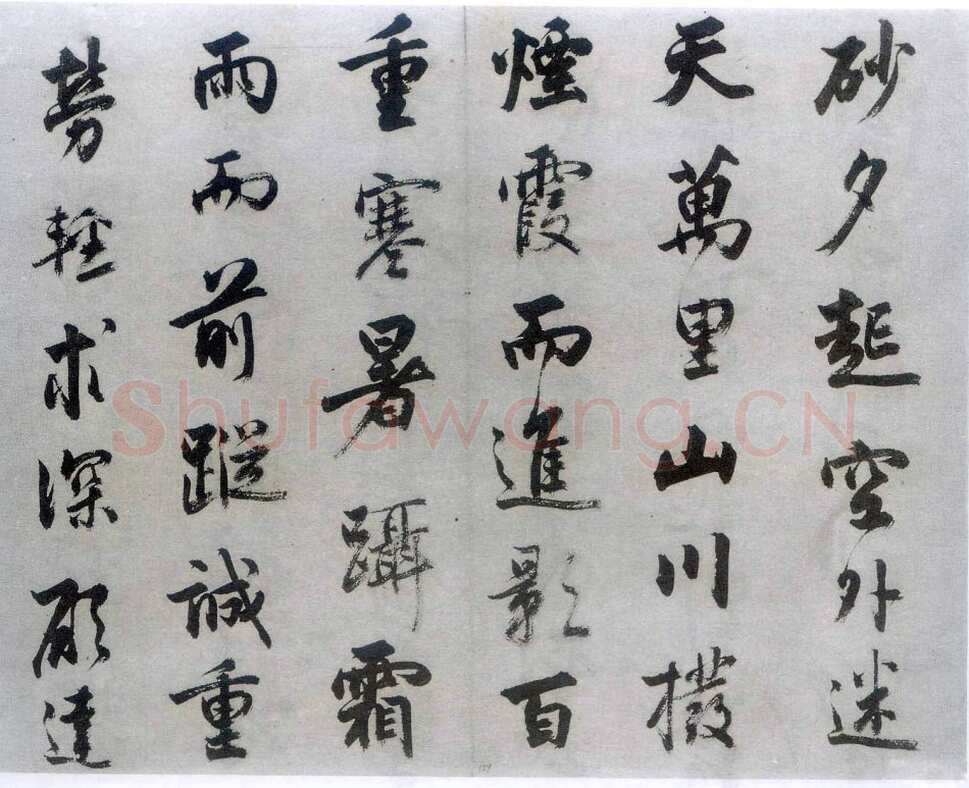 砂夕起空外迷
天萬里山川撥
煙霞而進影百
重寒暑躡霜
雨而前蹤誠重
勞輕求深願達
Shufawang.CN